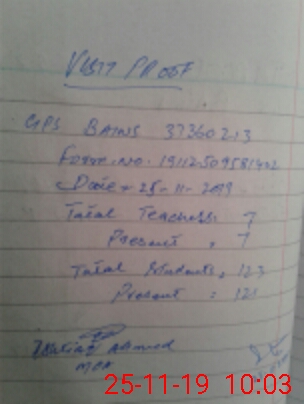 VISIT PROOF
GPS BAINS 37360213
Form.No. 19112509581402
Date 25-11-2019
Total Teachers, 7
Present, 7
Total Students, 123
Present : 121
Ahmed
MEA
25-11-19 10:03